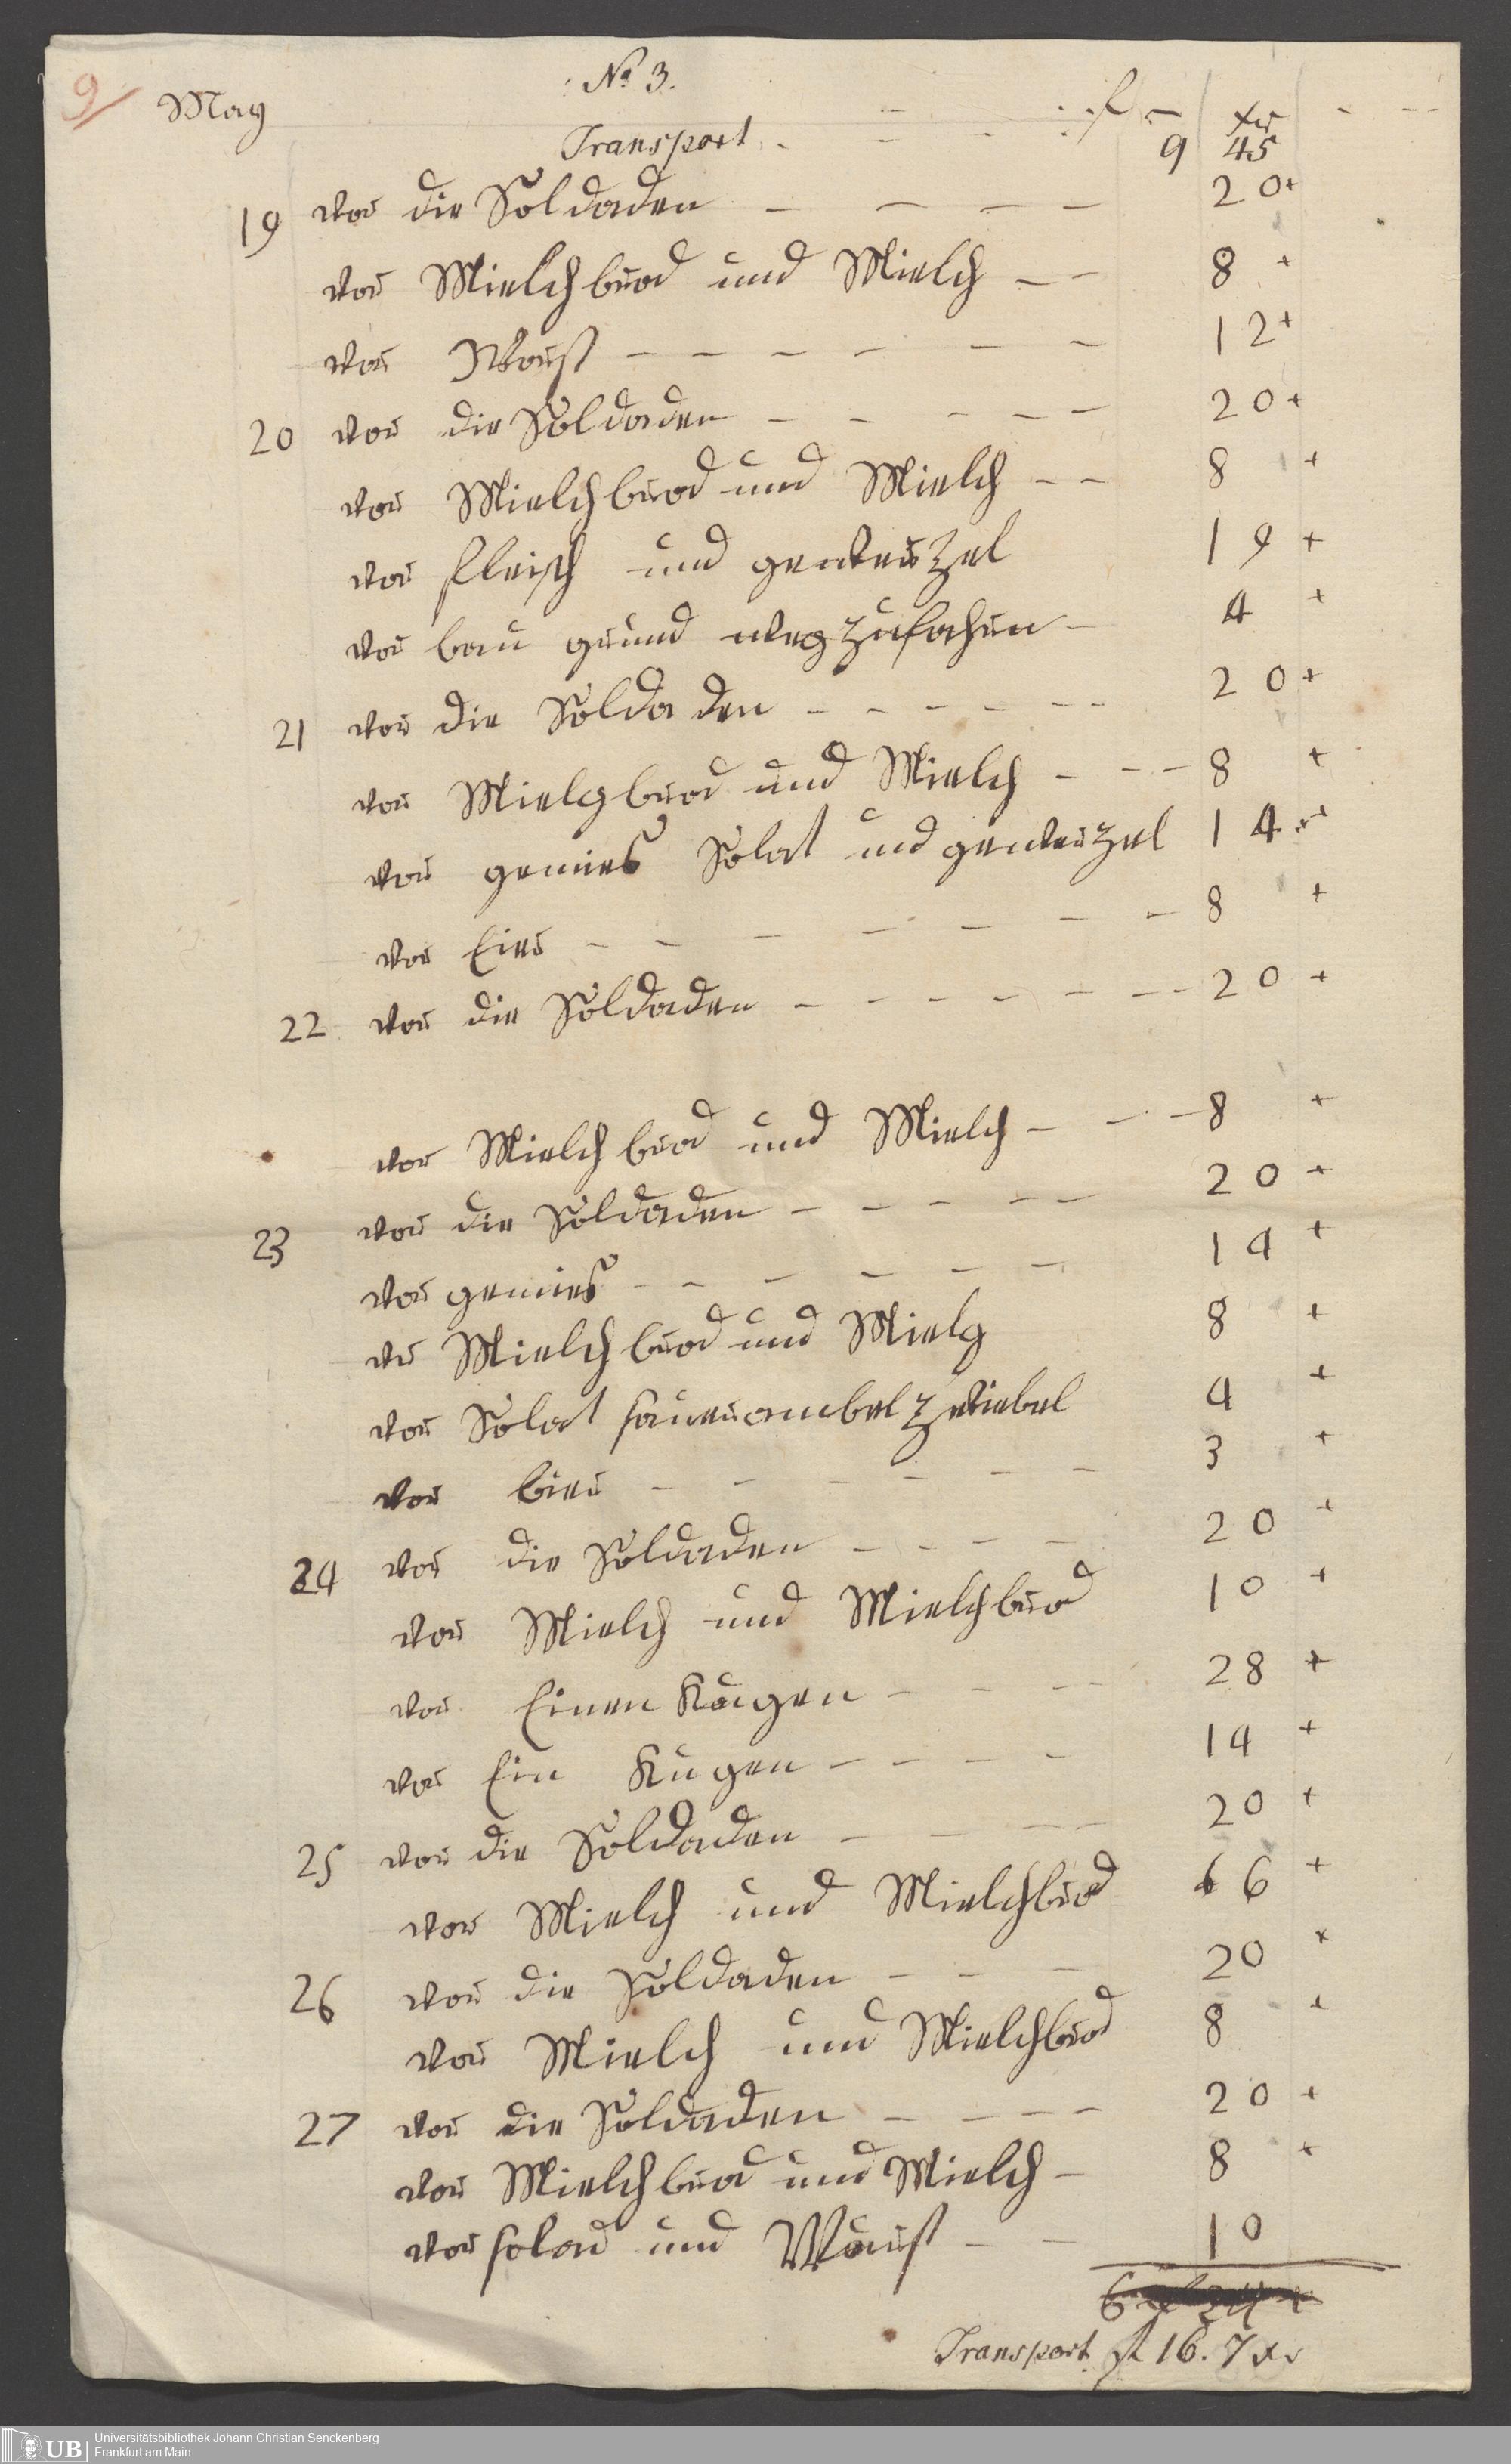 9/
No 3.
May
f xr
Transport 9 45
19 vor die Soldaden 20 +
vor Mielchbrod und Mielch 8 +
vor Worst 12 +
20 vor die Soldaden 20 +
vor Mielchbrod und Mielch 8 +
vor fleisch und gewerzel 19 +
vor bau grund weg zufahren 4 +
21 vor die Soldaden 20 +
vor Mielgbrod und Mielch 8 +
vor gemies Solat und gewerzel 14 +
vor Eier 8 +
22 vor die Soldaden 20 +
vor Mielchbrod und Mielch 8 +
23 vor die Soldaden 20 +
vor gemies 14 +
vor Mielchbrod und Mielg 8 +
vor Solat saurrambel zwiebel 4 +
vor bier 3 +
24 vor die Soldaden 20 +
vor Mielch und Mielchbrod 10 +
vor Einen Kugen 28 +
vor Ein Kugen 14 +
25 vor die Soldaden 20 +
vor Mielch und Mielchbrod 6 +
26 vor die Soldaden 20 +
vor Mielch und Mielchbrod 8 +
27 vor die Soldaden 20 +
vor Mielchbrod und Mielch 8 +
vor solad und Worst 10
Transport f 16. 7 xr
UB Universitätsbibliothek Johann Christian Senckenberg
Frankfurt am Main